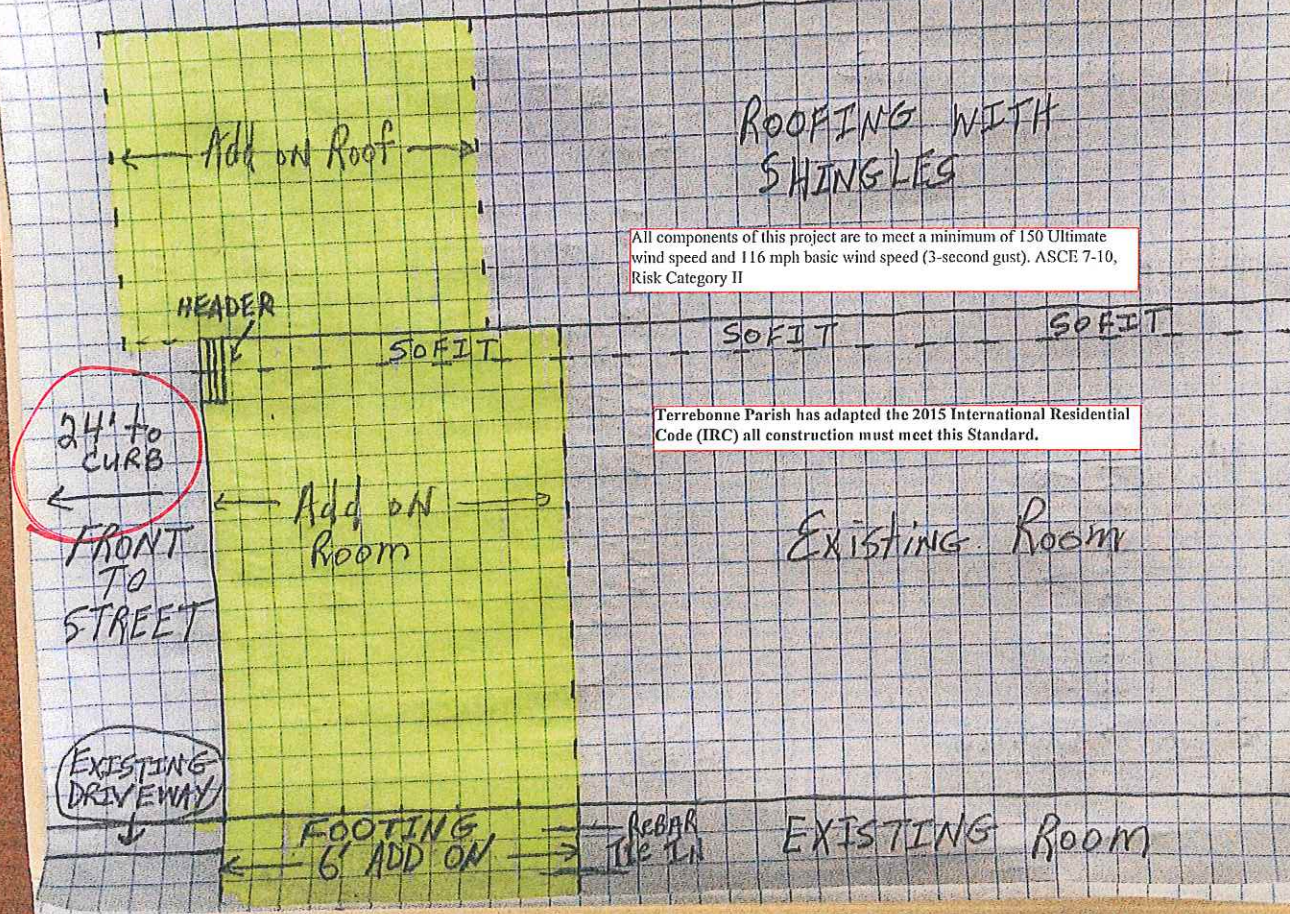 Add on Roof
ROOFING WITH
SHINGLES
All components of this project are to meet a minimum of 150 Ultimate
wind speed and 116 mph basic wind speed (3-second gust). ASCE 7-10,
Risk Category II
HEADER
SOFIT
SOFIT
SOFIT
24' to
CURB
Terrebonne Parish has adapted the 2015 International Residential
Code (IRC) all construction must meet this Standard.
Add on
Room
Existing Room
FRONT
TO
STREET
EXISTING
DRIVEWAY
FOOTING
6' ADD ON
ReBAR
TIe IN
EXISTING Room